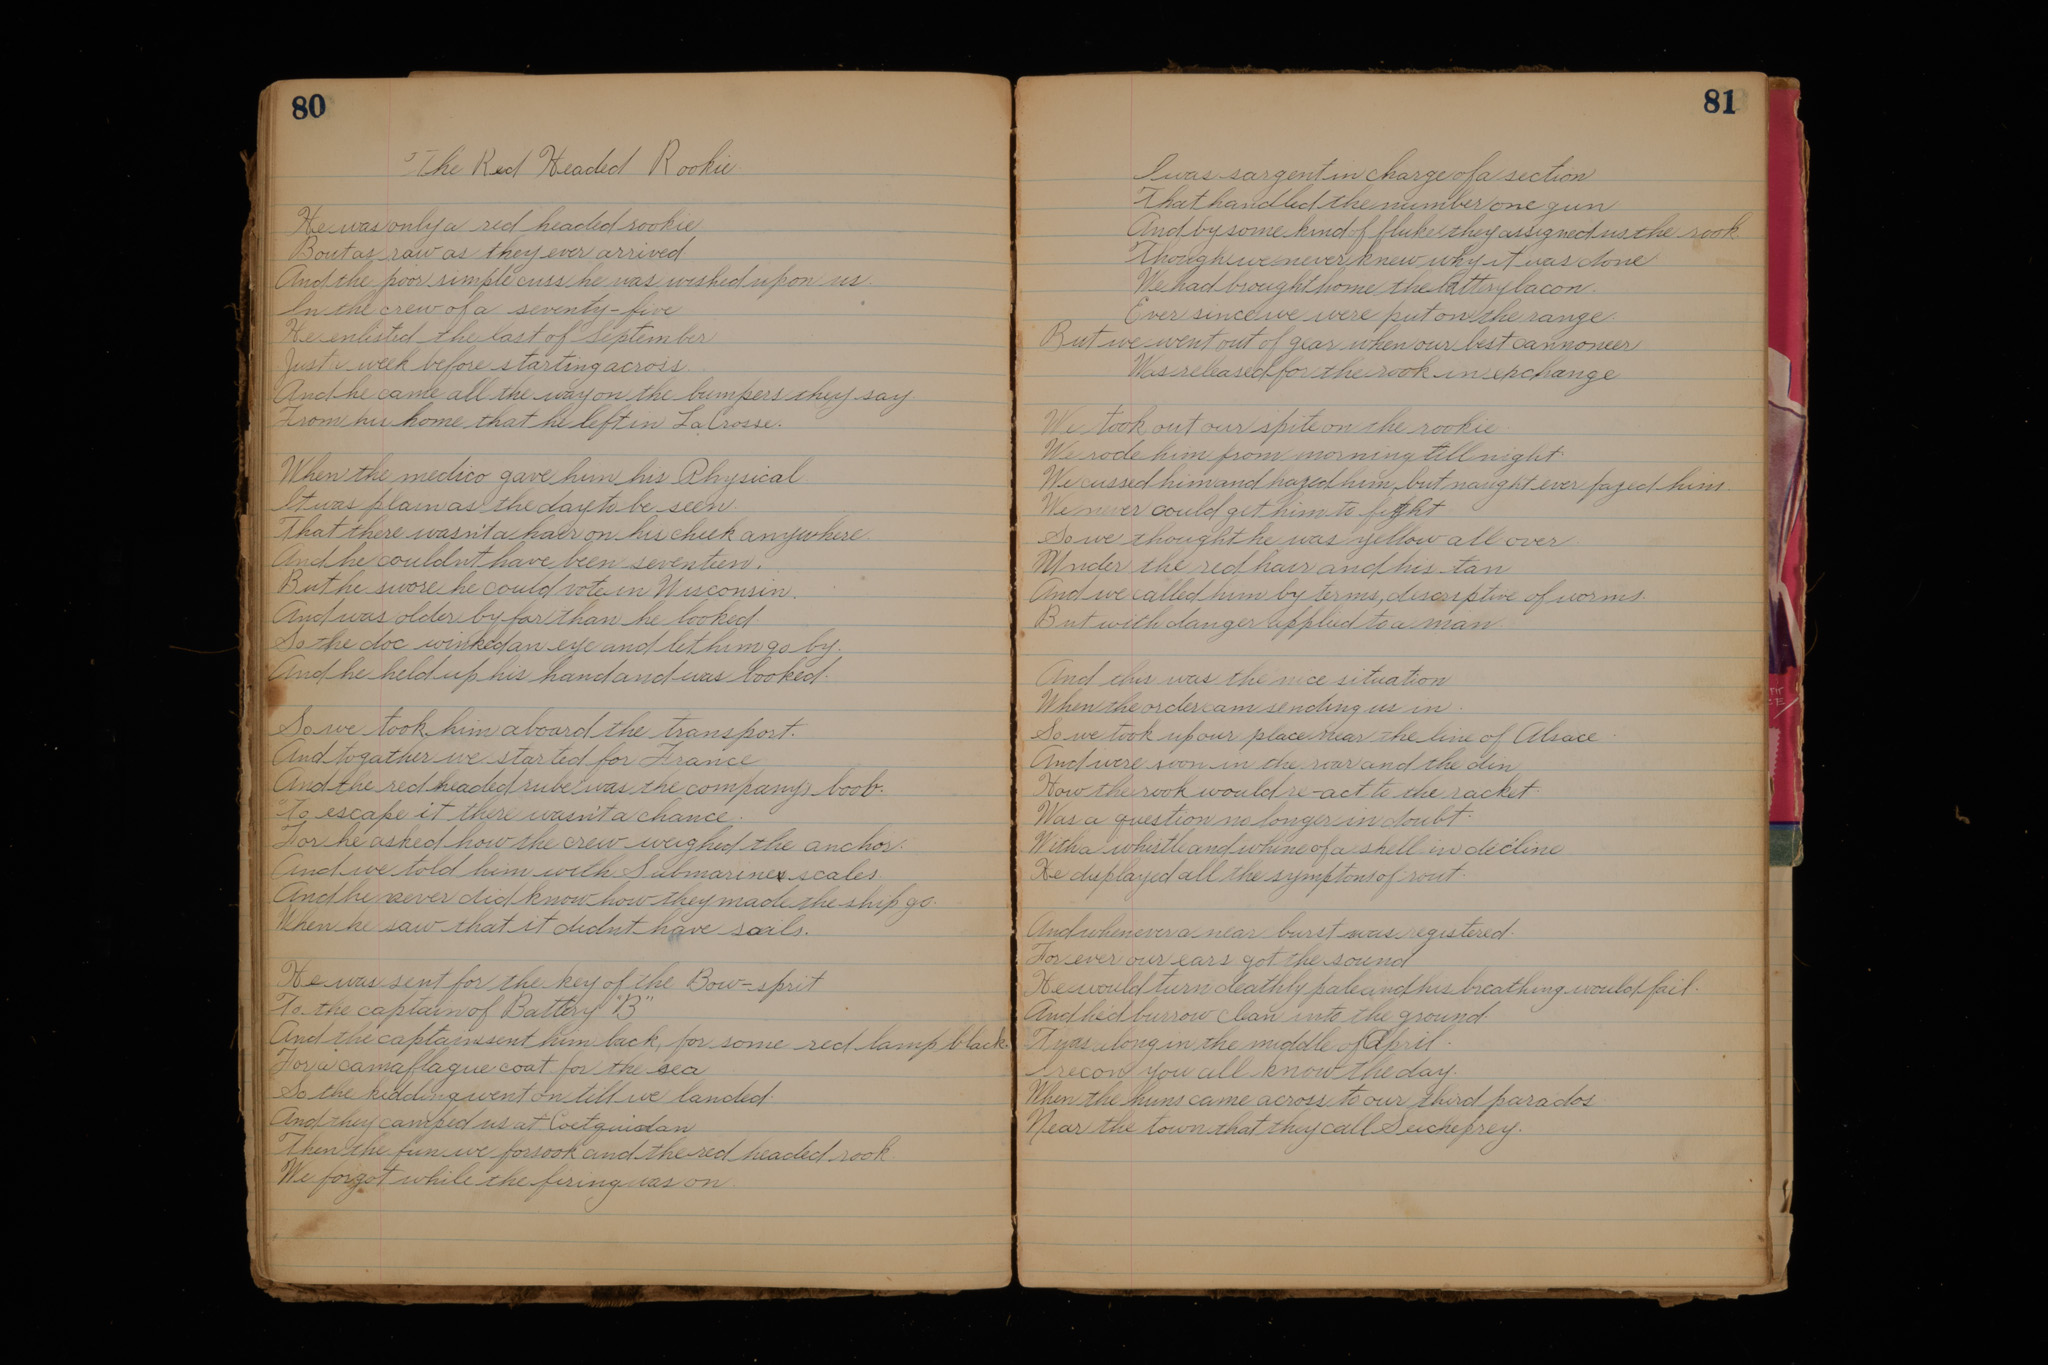 80
The Red Headed Rookie
He was only a red headed rookie
Bout as raw as they ever arrived
And the poor simple cuss he was wished upon us.
In the crew of a seventy-five
He enlisted the last of September
Just a week before starting across.
And he came all the way on the bumpers they say
From his home that he left in LaCrosse.
When the medico gave him his Physical
It was plain as the day to be seen.
That there wasn't a haer on his cheek anywhere
And he couldn't have been seventeen.
But he swore he could vote in Wisconsin.
And was older by far than he looked.
So the doc winked an eye and let him go by.
And he held up his hand and was booked.
So we took him aboard the transport.
And togather we started for France
And the red headed rube was the company's boob.
To escape it there wasn't a chance.
For he asked how the crew weighed the anchor.
And we told him with Submarines scales
And he never did know how they made the ship go.
When he saw that it didnt have sails.
He was sent for the key of the Bow-sprit
To the captain of Battery "B"
And the captain sent him back, for some red lamp black.
For a camaflague coat for the sea
So the kidding went on till we landed.
And they camped us at Coetquidan
Then the fun we forsook and the red headed rook
We forgot while the firing was on
81
I was sargent in charge of a section
That handled the number one gun
And by some kind of fluke they assigned us the rook
Though we never knew why it was done
We had brought home the battery bacon.
Ever since we were put on the range.
But we went out of gear when our best cannoneer
Was released for the rook in exchange
We took out our spite on the rookie
We rode him from morning till night.
We cussed him and hazed him, but naught ever fazed him.
We never could get him to fight
So we thought he was yellow all over
Under the red hair and his tan
And we called him by terms, discriptive of worms.
But with danger applied to a man
And this was the nice situation
When the order cam sending us in.
So we took up our place near the line of Alsace
And were soon in the roar and the din
How the rook would re-act to the racket.
Was a question no longer in doubt.
With a whistle and whine of a shell in decline
He displayed all the symptons of rout.
And whenever a near burst was registered.
For ever our ears got the sound
He would turn deathly pale and his breathing would fail.
And he'd burrow clean into the ground.
Twas along in the middle of April.
I recon you all know the day.
When the huns came across to our third parados
Near the town that they call Seicheprey.